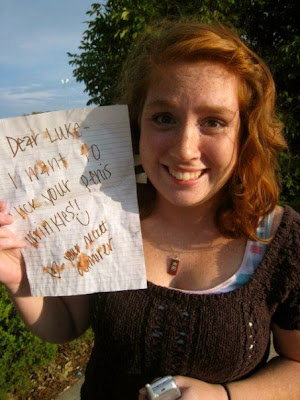 Dear Luke-
I want to
lick your penis
wrinkles!!
Love your secret
admirer